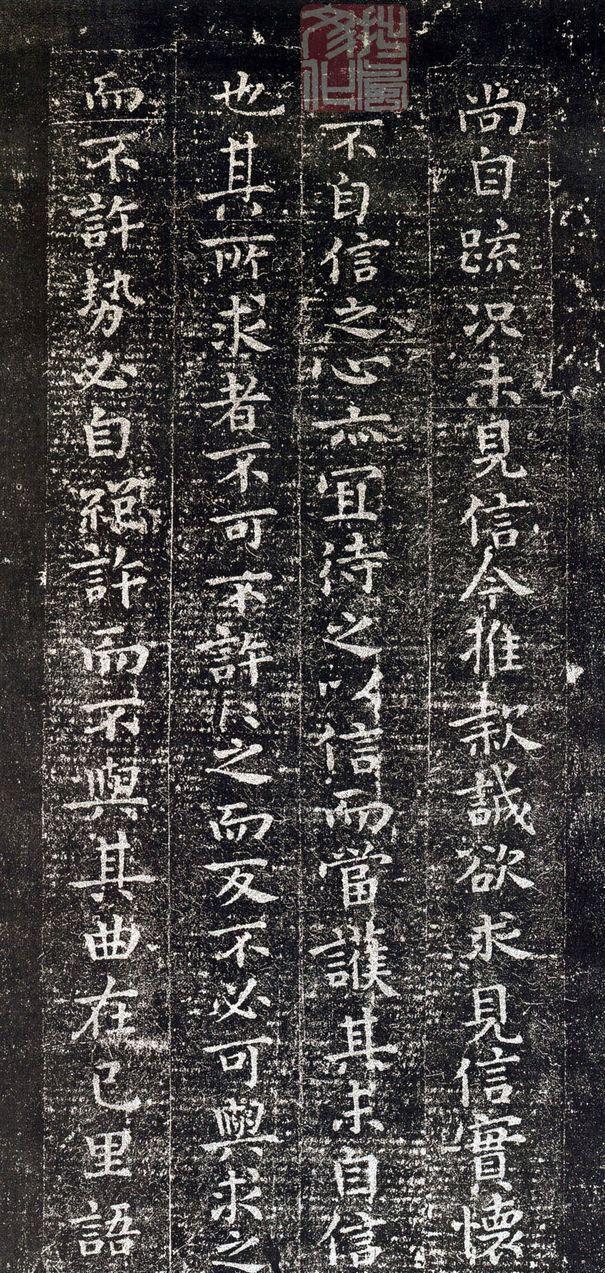 尚自疏況未見信今推款誠欲求見信實懷
不自信之心亦冝待之以信而當護其未自信
也其所求者不可不許許之而反不必可與求之
而不許勢必自絕許而不與其曲在己里語